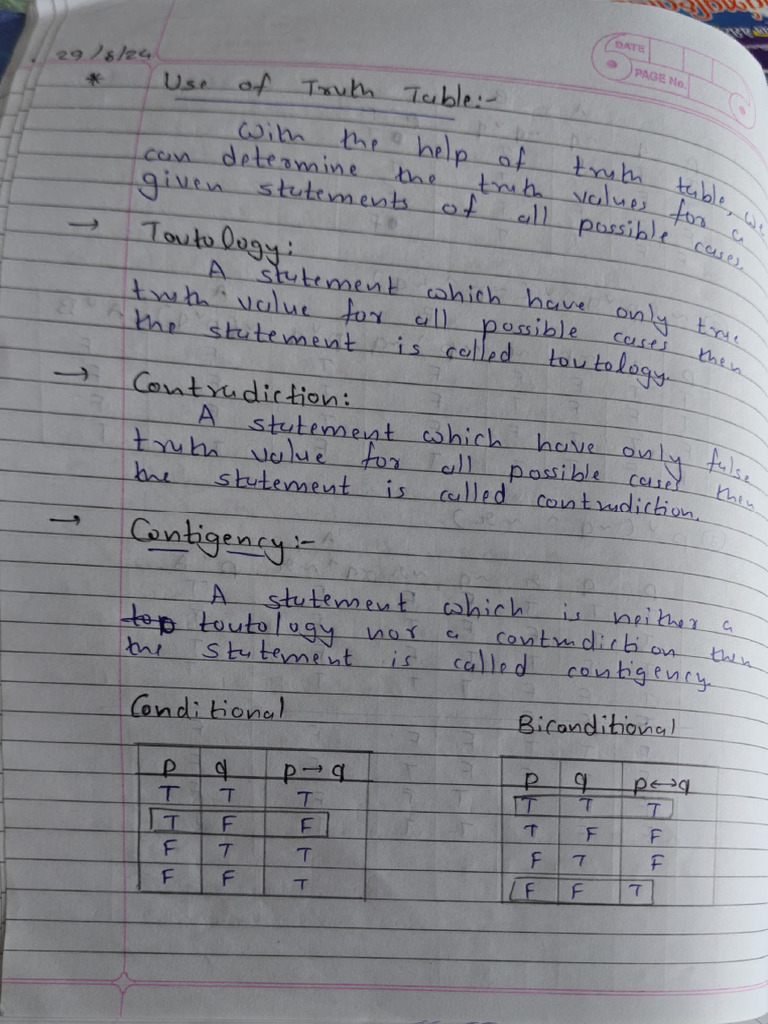 29/8/24
DATE
PAGE No.
* Use of Truth Table:-
With the help of truth table, we
can determine the truth values for a
given statements of all possible cases.
→ Toutology:
A statement which have only true
truth value for all possible cases then
the statement is called toutology.
→ Contradiction:
A statement which have only false
truth value for all possible cases then
the statement is called contradiction.
→ Contigency:-
A statement which is neither a
toutology nor a contradiction then
the statement is called contigency.
Conditional
p q p→q
T T T
T F F
F T T
F F T
Biconditional
p q p↔q
T T T
T F F
F T F
F F T